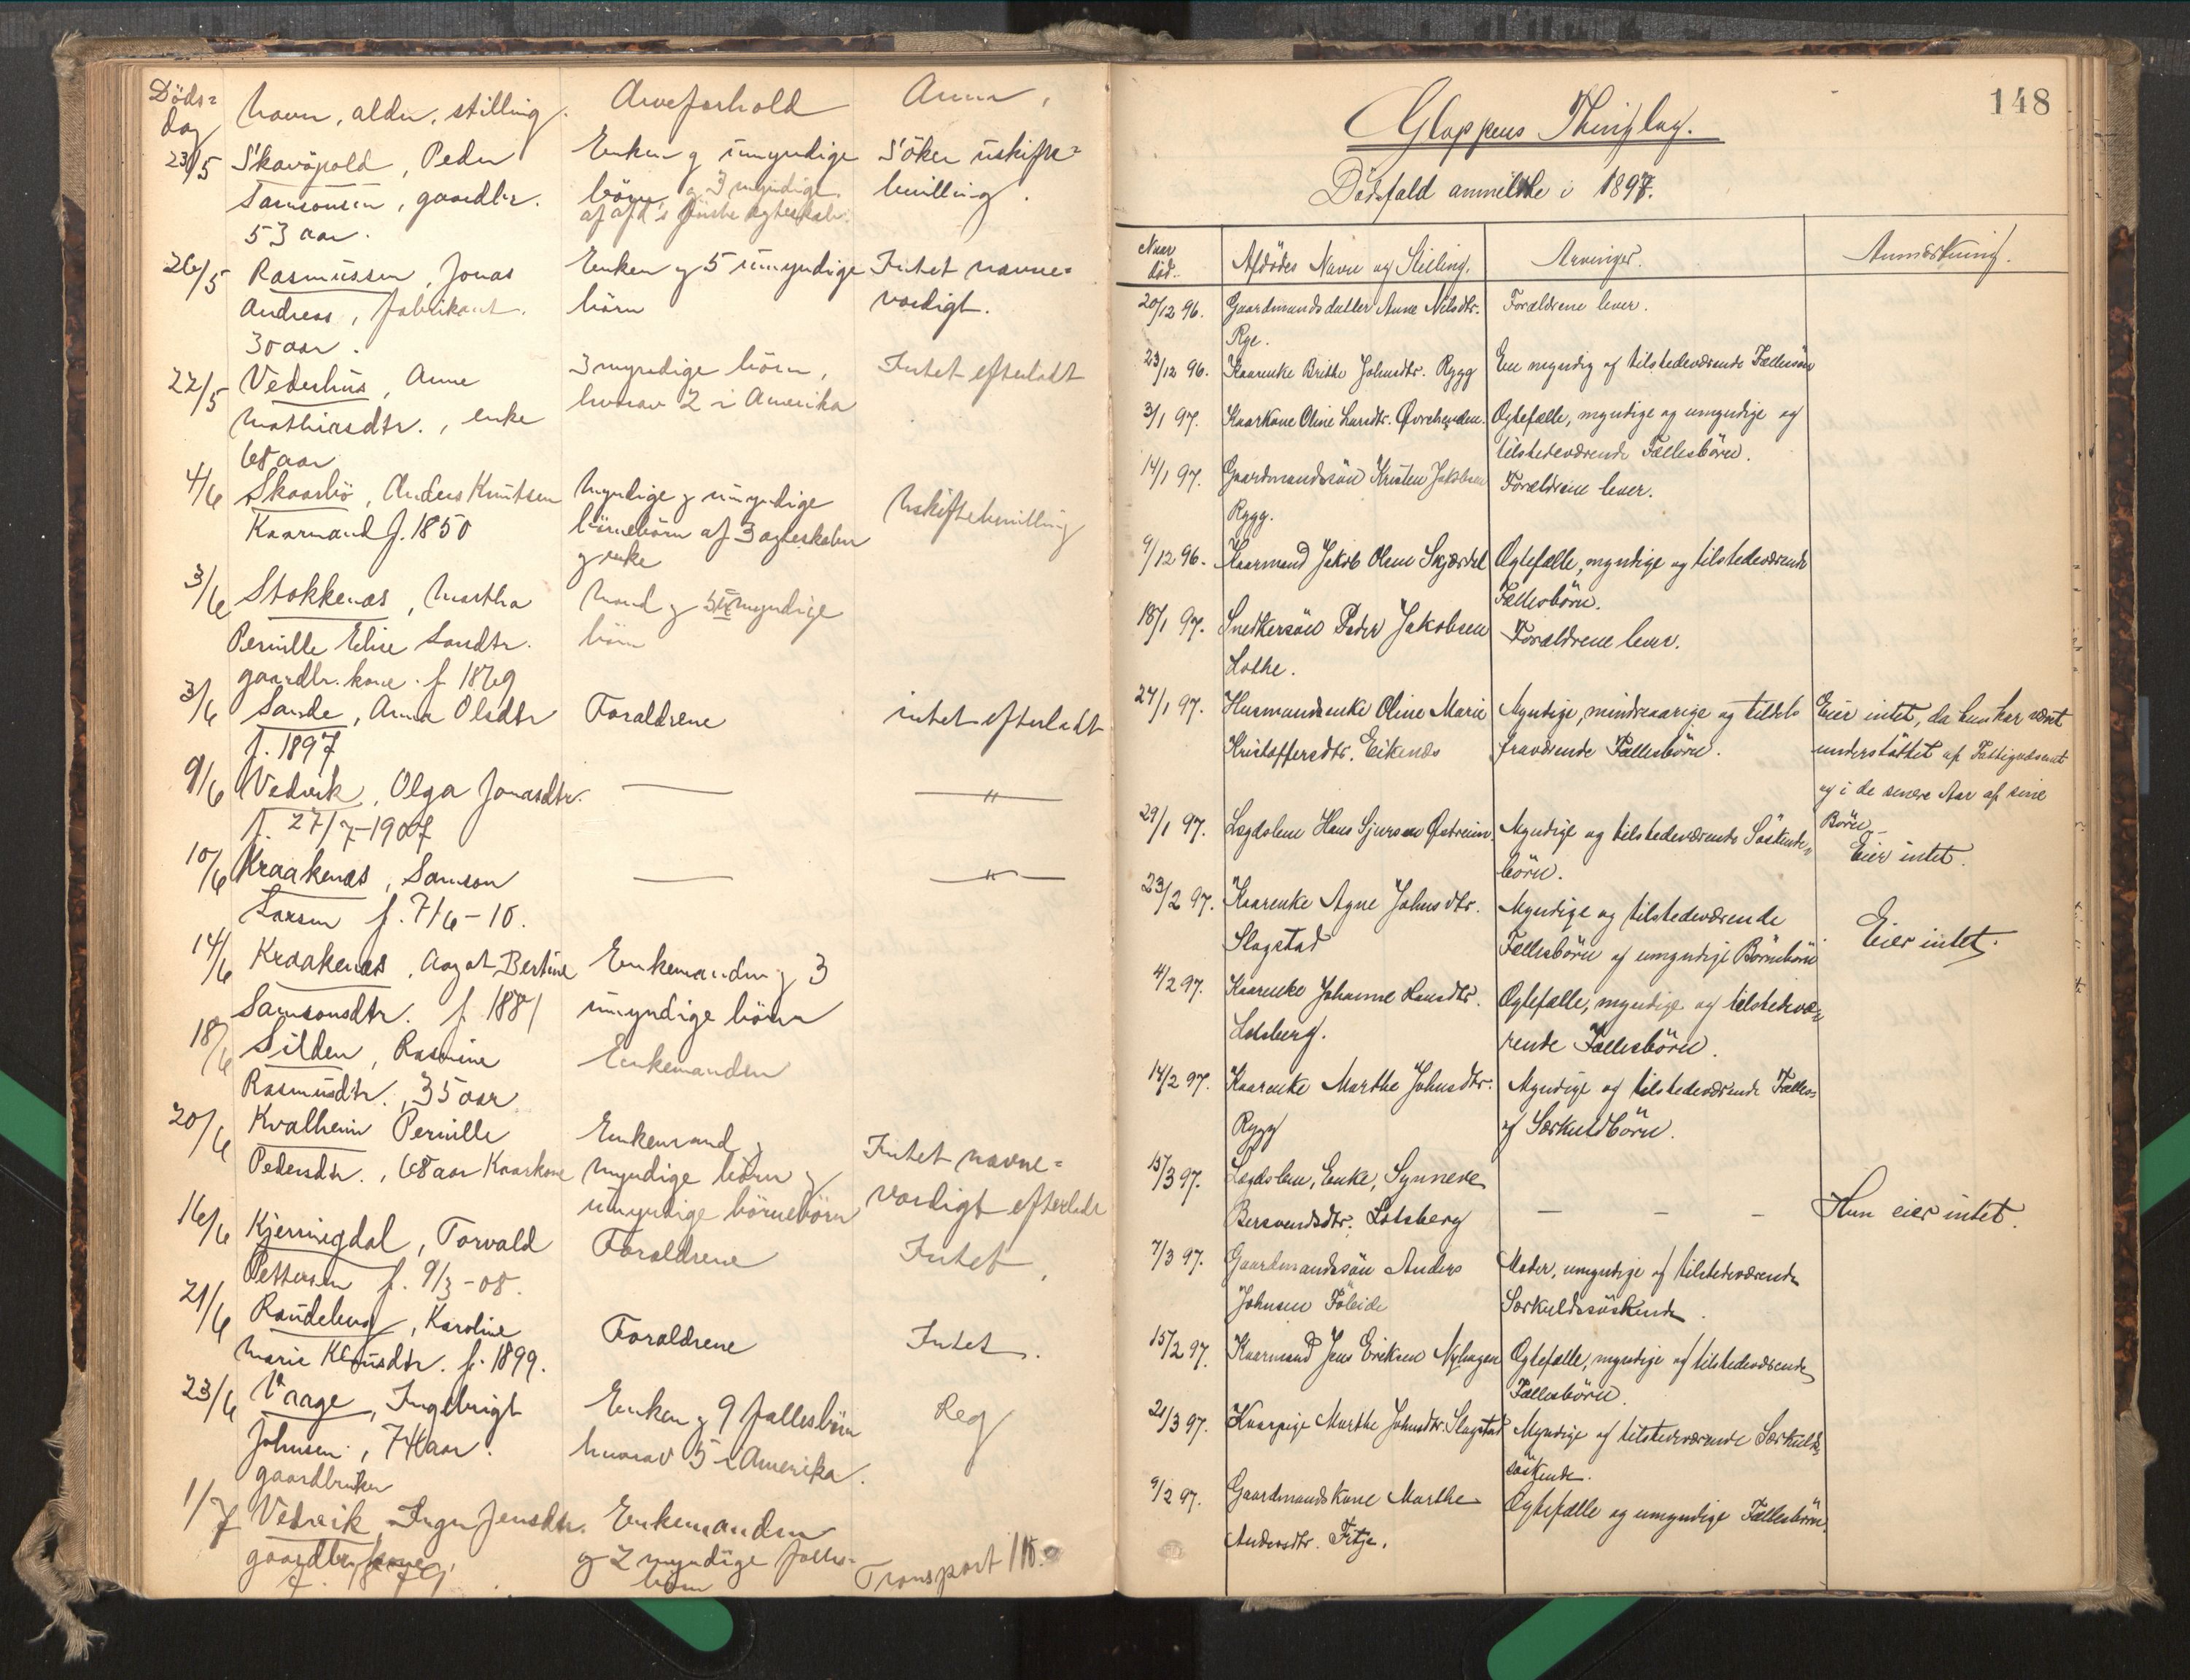 Döds=
dag
Navn, alder, stilling.
Arveforhold
Anm.
23/5
Skavöpold, Peder
Samsonsen, gaardbr.
53 aar.
Enken og umyndige
börn og 3 myndige
af afd's förste egteskab.
Söker uskifte=
bevilling.
26/5
Rasmussen, Jonas
Andreas, fabrikant.
30 aar.
Enken og 5 umyndige
börn
Intet navne=
verdigt.
22/5
Vederhus, Anne
Mathiasdtr., enke
68 aar
3 myndige börn,
hvorav 2 i Amerika
Intet efterladt
4/6
Skaarbö, Anders Knutsen
Kaarmand f. 1850
Myndige og umyndige
börnebörn af 3 egteskaber
og enke
Uskiftebevilling
3/6
Stokkenæs, Martha
Pernille Elise Larsdtr.
gaardbr. kone. f 1869
Mand og 5 umyndige
börn
3/6
Sande, Anna Olsdtr
f. 1897
Foraldrene
intet efterladt
9/6
Vedvik, Olga Jonasdtr.
f. 27/7-1907
— —"—
10/6
Kraakenæs, Samson
Larsen f. 7/6-10.
— —"—
14/6
Kraakenæs, Aagot Bertine
Samsonsdtr. f. 1881
Enkemanden og 3
umyndige börn
18/6
Silden, Rasmine
Rasmusdtr., 35 aar
Enkemanden
20/6
Kvalheim Pernille
Pedersdtr., 68 aar Kaarkone
Enkemand og
myndige börn og
umyndige börnebörn
Intet navne=
verdigt efterladt
16/6
Kjerringdal, Torvald
Pettersen f. 9/3-08.
Foraldrene
Intet.
21/6
Raudeberg, Karoline
Marie Klausdtr. f. 1899.
Foraldrene
Intet.
23/6
Vaage, Ingebrigt
Johnsen, 74 aar.
gaardbruker
Enken og 9 fallesbörn
hvorav 5 i Amerika.
Reg
1/7
Vedvik, Inger Jensdtr.
gaardbr. kone
Enkemanden
og 2 myndige falles=
börn
Transport
148
Gloppens Thinglag.
Dödsfald anmeldte i 1897.
Naar
död.
Afdödes Navn og Stilling.
Arvinger.
Anmærkning.
20/12 96.
Gaardmandsdatter Anne Nilsdtr.
Rye.
Forældrene lever.
23/12 96.
Kaarenke Brithe Johnsdtr. Rygg
En myndig og tilstedeværende Fællessön
3/1 97.
Kaarkone Oline Larsdtr. Øvrebynden.
Ogtefælle, myndige og umyndige og
tilstedeværende Fællesbörn.
14/1 97.
Gaardmandssön Kristen Jakobsen
Rygg.
Forældrene lever.
9/12 96.
Kaarmand Jakob Olsen Skjærdal
Ogtefælle, myndige og tilstedeværende
Fællesbörn.
18/1 97.
Snedkersön Peder Jakobsen
Lothe.
Forældrene lever.
27/1 97.
Husmandsenke Oline Marie
Kristoffersdtr. Eikenæs
Myndige, mindreaarige og tildels
fraværende Fællesbörn.
Eier intet, da hun har været
understöttet af Fattigvæsenet
og i de senere Aar af sine
Börn
29/1 97.
Lægdslem Hans Sjursen Østreim.
Myndige og tilstedeværende Söskende
börn.
Eier intet.
23/2 97.
Kaarenke Agne Johnsdtr.
Slagstad
Myndige og tilstedeværende
Fællesbörn og umyndige Börnebörn
Eier intet.
4/2 97.
Kaarenke Johanne Hansdtr.
Lotsberg.
Ogtefælle, myndige og tilstedevæ=
rende Fællesbörn.
14/2 97.
Kaarenke Marthe Johnsdtr.
Rygg
Myndige og tilstedeværende Fælles=
og Særkuldbörn.
15/3 97.
Lægdslem, Enke, Synneve
Bersvendsdtr. Lotsberg
— — —
Hun eier intet.
7/3 97.
Gaardmandssön Anders
Johnsen Föleide
Moder, umyndige og tilstedeværende
Særkuldssöskende.
15/2 97.
Kaarmand Jens Eriksen Nyhagen
Ogtefælle, myndige og tilstedeværende
Fællesbörn.
21/3 97.
Kaarpige Marthe Johnsdtr. Slagstad
Myndige og tilstedeværende Særkulds=
söskende.
9/2 97.
Gaardmandskone Marthe
Andersdtr. Fitje.
Ogtefælle og umyndige Fællesbörn.